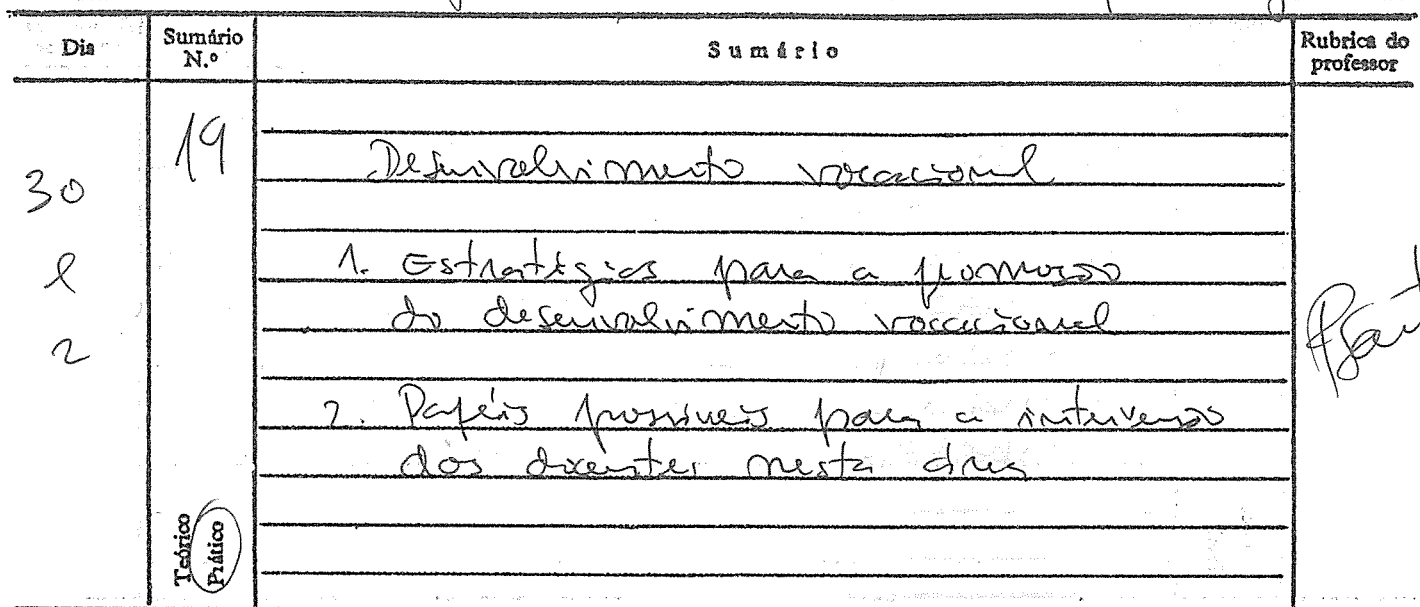 Dia
Sumário N.º
Sumário
Rubrica do professor
30
19
Desenvolvimento vocacional
1. Estratégias para a promoção
do desenvolvimento vocacional
2
2. Papéis possíveis para a intervenção
dos docentes nesta área
Teórico
Prático